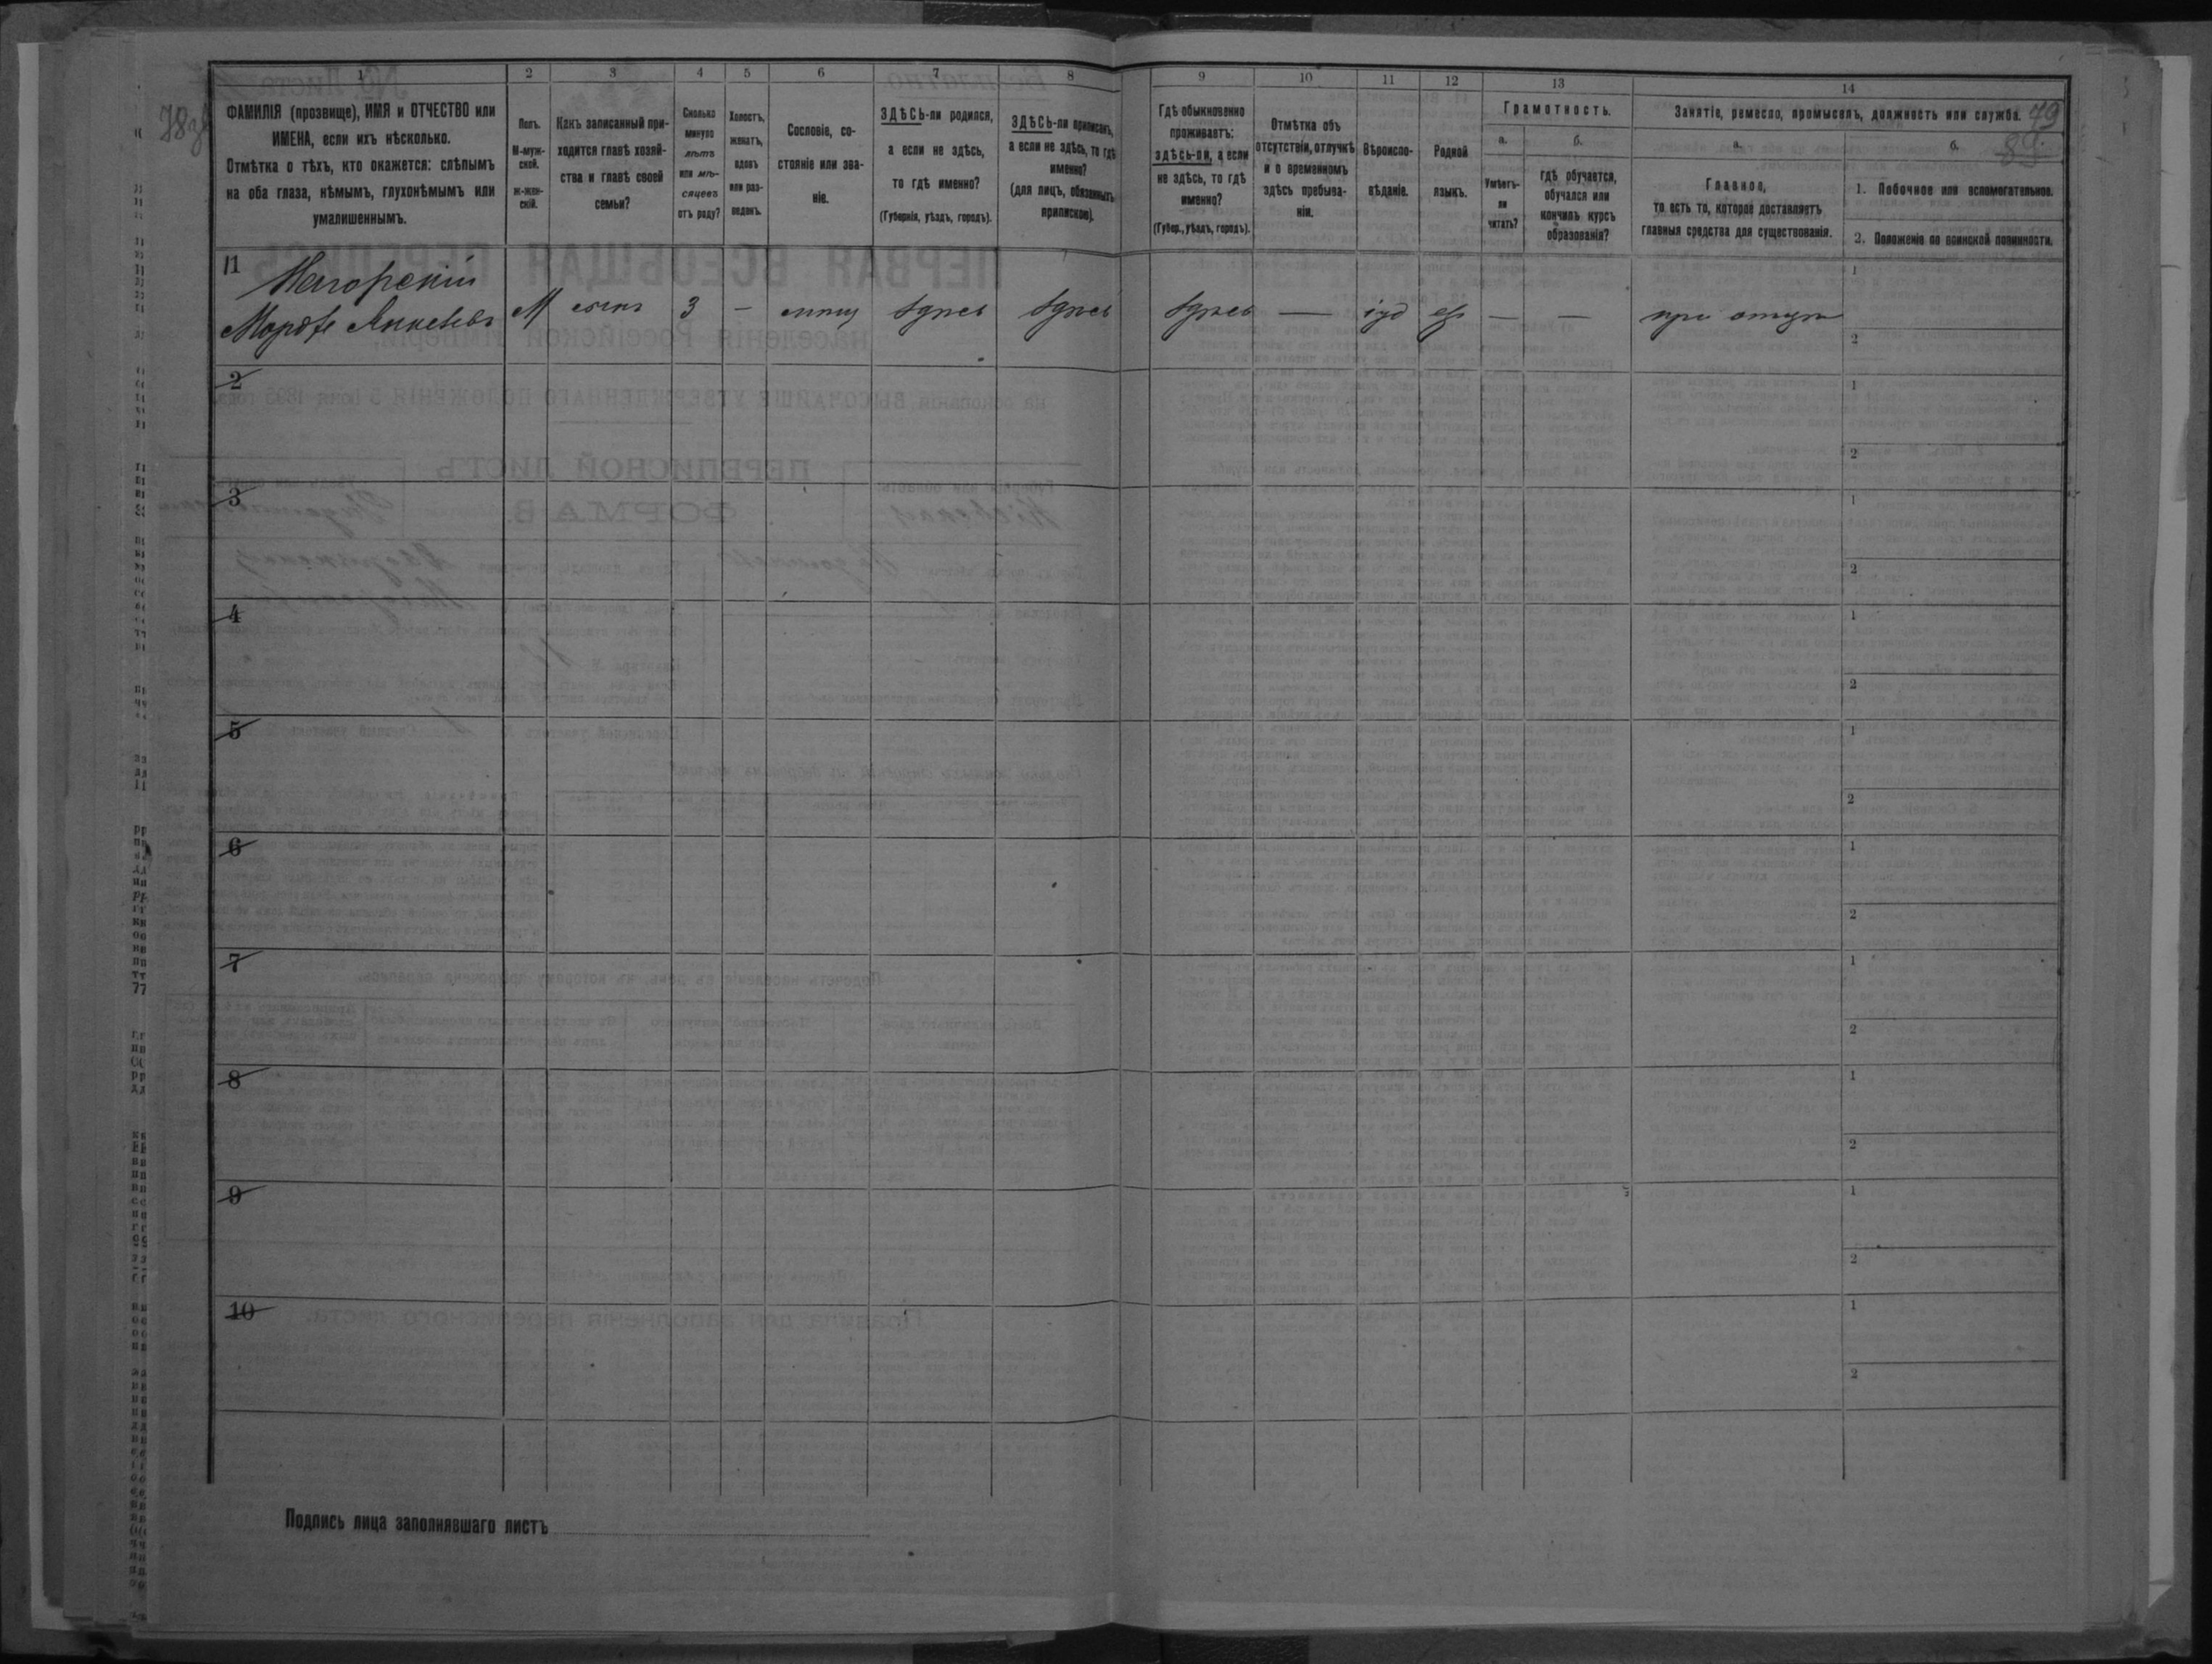 1 2 3 4 5 6 7 8 9 10 11 12 13 14
ФАМИЛІЯ (прозвище), ИМЯ и ОТЧЕСТВО или
ИМЕНА, если ихъ нѣсколько.
Отмѣтка о тѣхъ, кто окажется: слѣпымъ
на оба глаза, нѣмымъ, глухонѣмымъ или
умалишеннымъ.
Полъ.
М-муж-
ской.
Ж-жен-
скій.
Какъ записанный при-
ходится главѣ хозяй-
ства и главѣ своей
семьи?
Сколько
минуло
лѣтъ
или мѣ-
сяцевъ
отъ роду?
Холостъ,
женатъ,
вдовъ
или раз-
веденъ.
Сословіе, со-
стояніе или зва-
ніе.
ЗДѢСЬ-ли родился,
а если не здѣсь,
то гдѣ именно?
(Губернія, уѣздъ, городъ).
ЗДѢСЬ-ли приписанъ,
а если не здѣсь, то гдѣ
именно?
(для лицъ, обязанныхъ
припискою).
Гдѣ обыкновенно
проживаетъ:
здѣсь-ли, а если
не здѣсь, то гдѣ
именно?
(Губер., уѣздъ, городъ).
Отмѣтка объ
отсутствіи, отлучкѣ
и о временномъ
здѣсь пребыва-
ніи.
Вѣроиспо-
вѣданіе.
Родной
языкъ.
Грамотность.
а.
Умѣетъ-
ли
читать?
б.
гдѣ обучается,
обучался или
кончилъ курсъ
образованія?
Занятіе, ремесло, промыселъ, должность или служба.
49
89
а.
Главное,
то есть то, которое доставляетъ
главныя средства для существованія.
б.
1. Побочное или вспомогательное.
2. Положеніе по воинской повинности.
11
Мордхе Янкелевъ М сынъ 3 — мѣщ здѣсь здѣсь здѣсь — іуд ев — — при отцѣ
1
2
2
1
2
3
1
2
4
1
2
5
1
2
6
1
2
7
1
2
8
1
2
9
1
2
10
1
2
Подпись лица заполнявшаго листъ